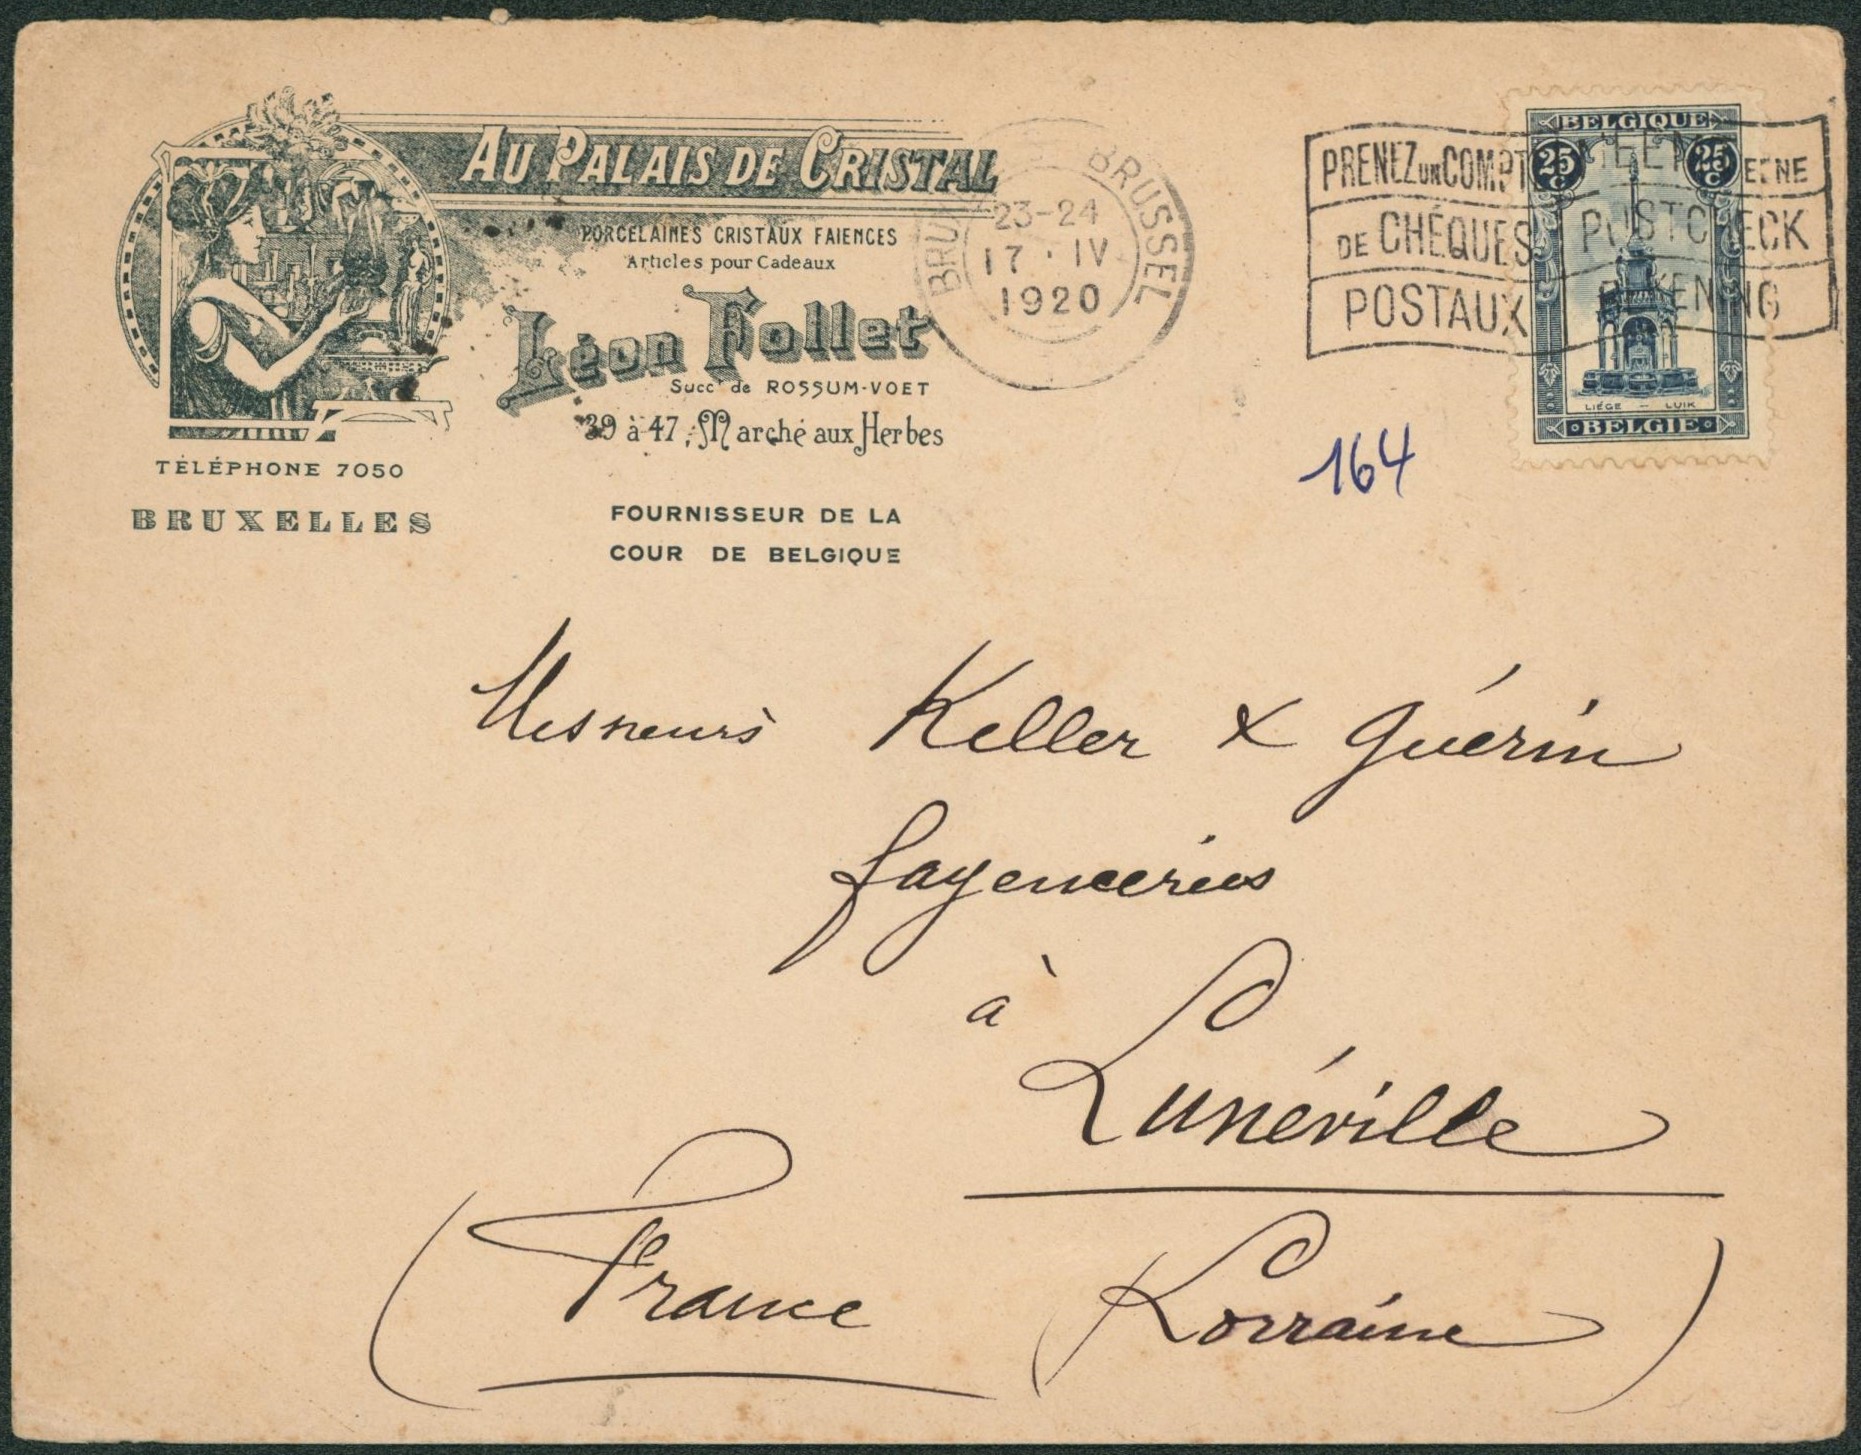 AU PALAIS DE CRISTAL
PORCELAINES CRISTAUX FAIENCES
Articles pour Cadeaux
Léon Follet
Succr de ROSSUM-VOET
39 à 47, Marché aux Herbes
TÉLÉPHONE 7050
BRUXELLES
FOURNISSEUR DE LA
COUR DE BELGIQUE
BRUSSEL
23-24
17 · IV
1920
PRENEZ UN COMPT
DE CHÉQUES
POSTAUX
BELGIQUE
25 C 25 C
LIÉGE - LUIK
BELGIE
164
Messieurs Keller & Guérin
fayenceries
à
Lunéville
(France (Lorraine)